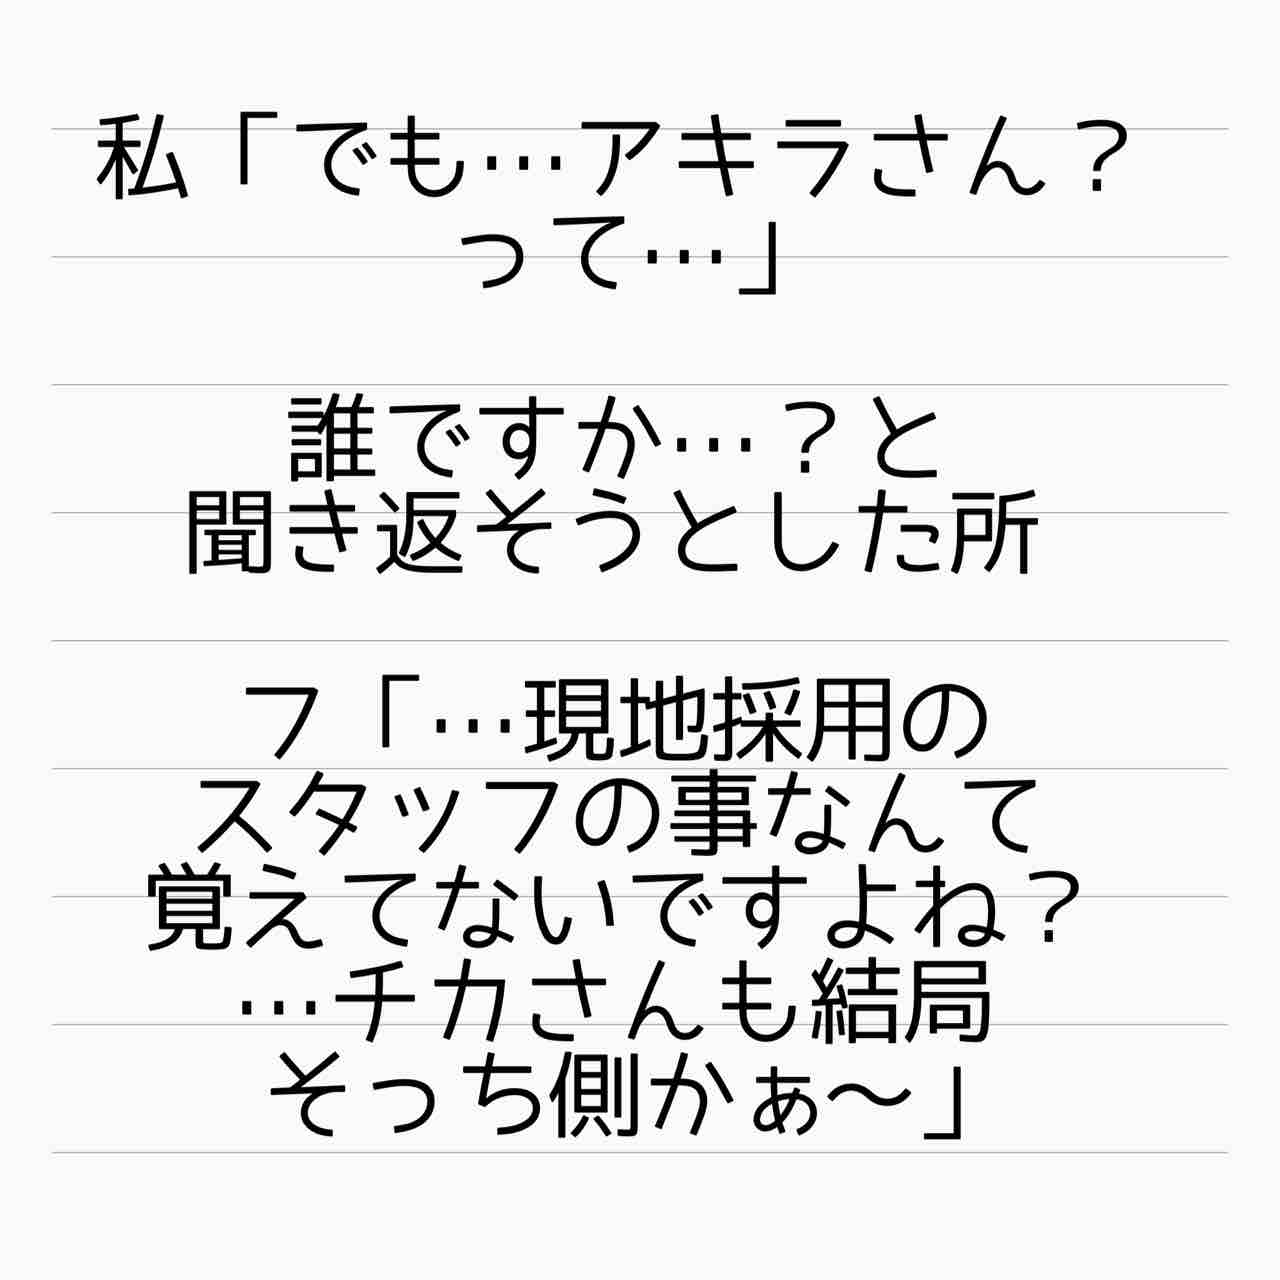 私「でも…アキラさん？
って…」
誰ですか…？と
聞き返そうとした所
フ「…現地採用の
スタッフの事なんて
覚えてないですよね？
…チカさんも結局
そっち側かぁ〜」